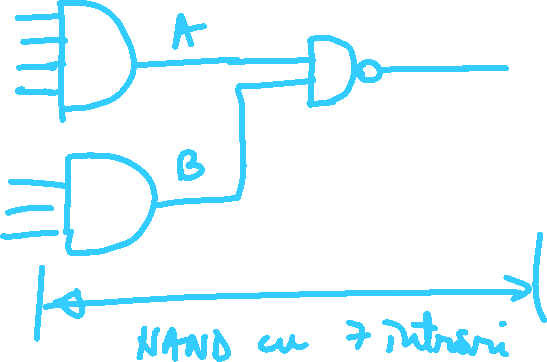 A
B
NAND cu 7 intrari